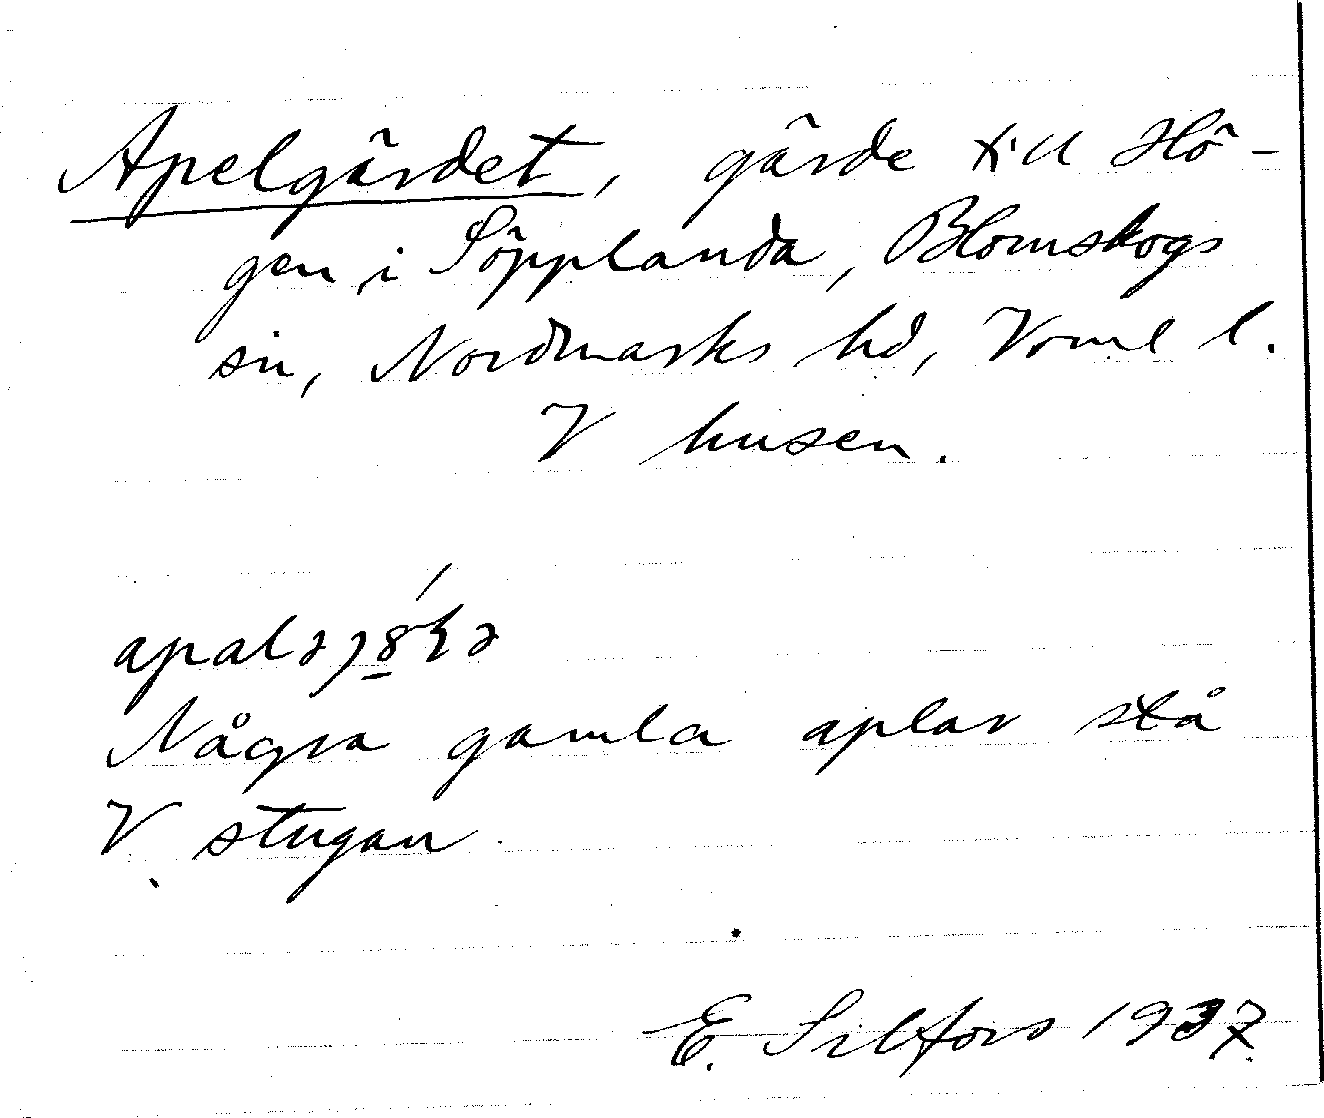 Apelgärdet, gärde till Hö-
gen i Söpplanda, Blomskogs
sn, Nordmarks hd, Vrml l.
V husen.
Några gamla aplar stå
V stugan
E. Silfors 1937.